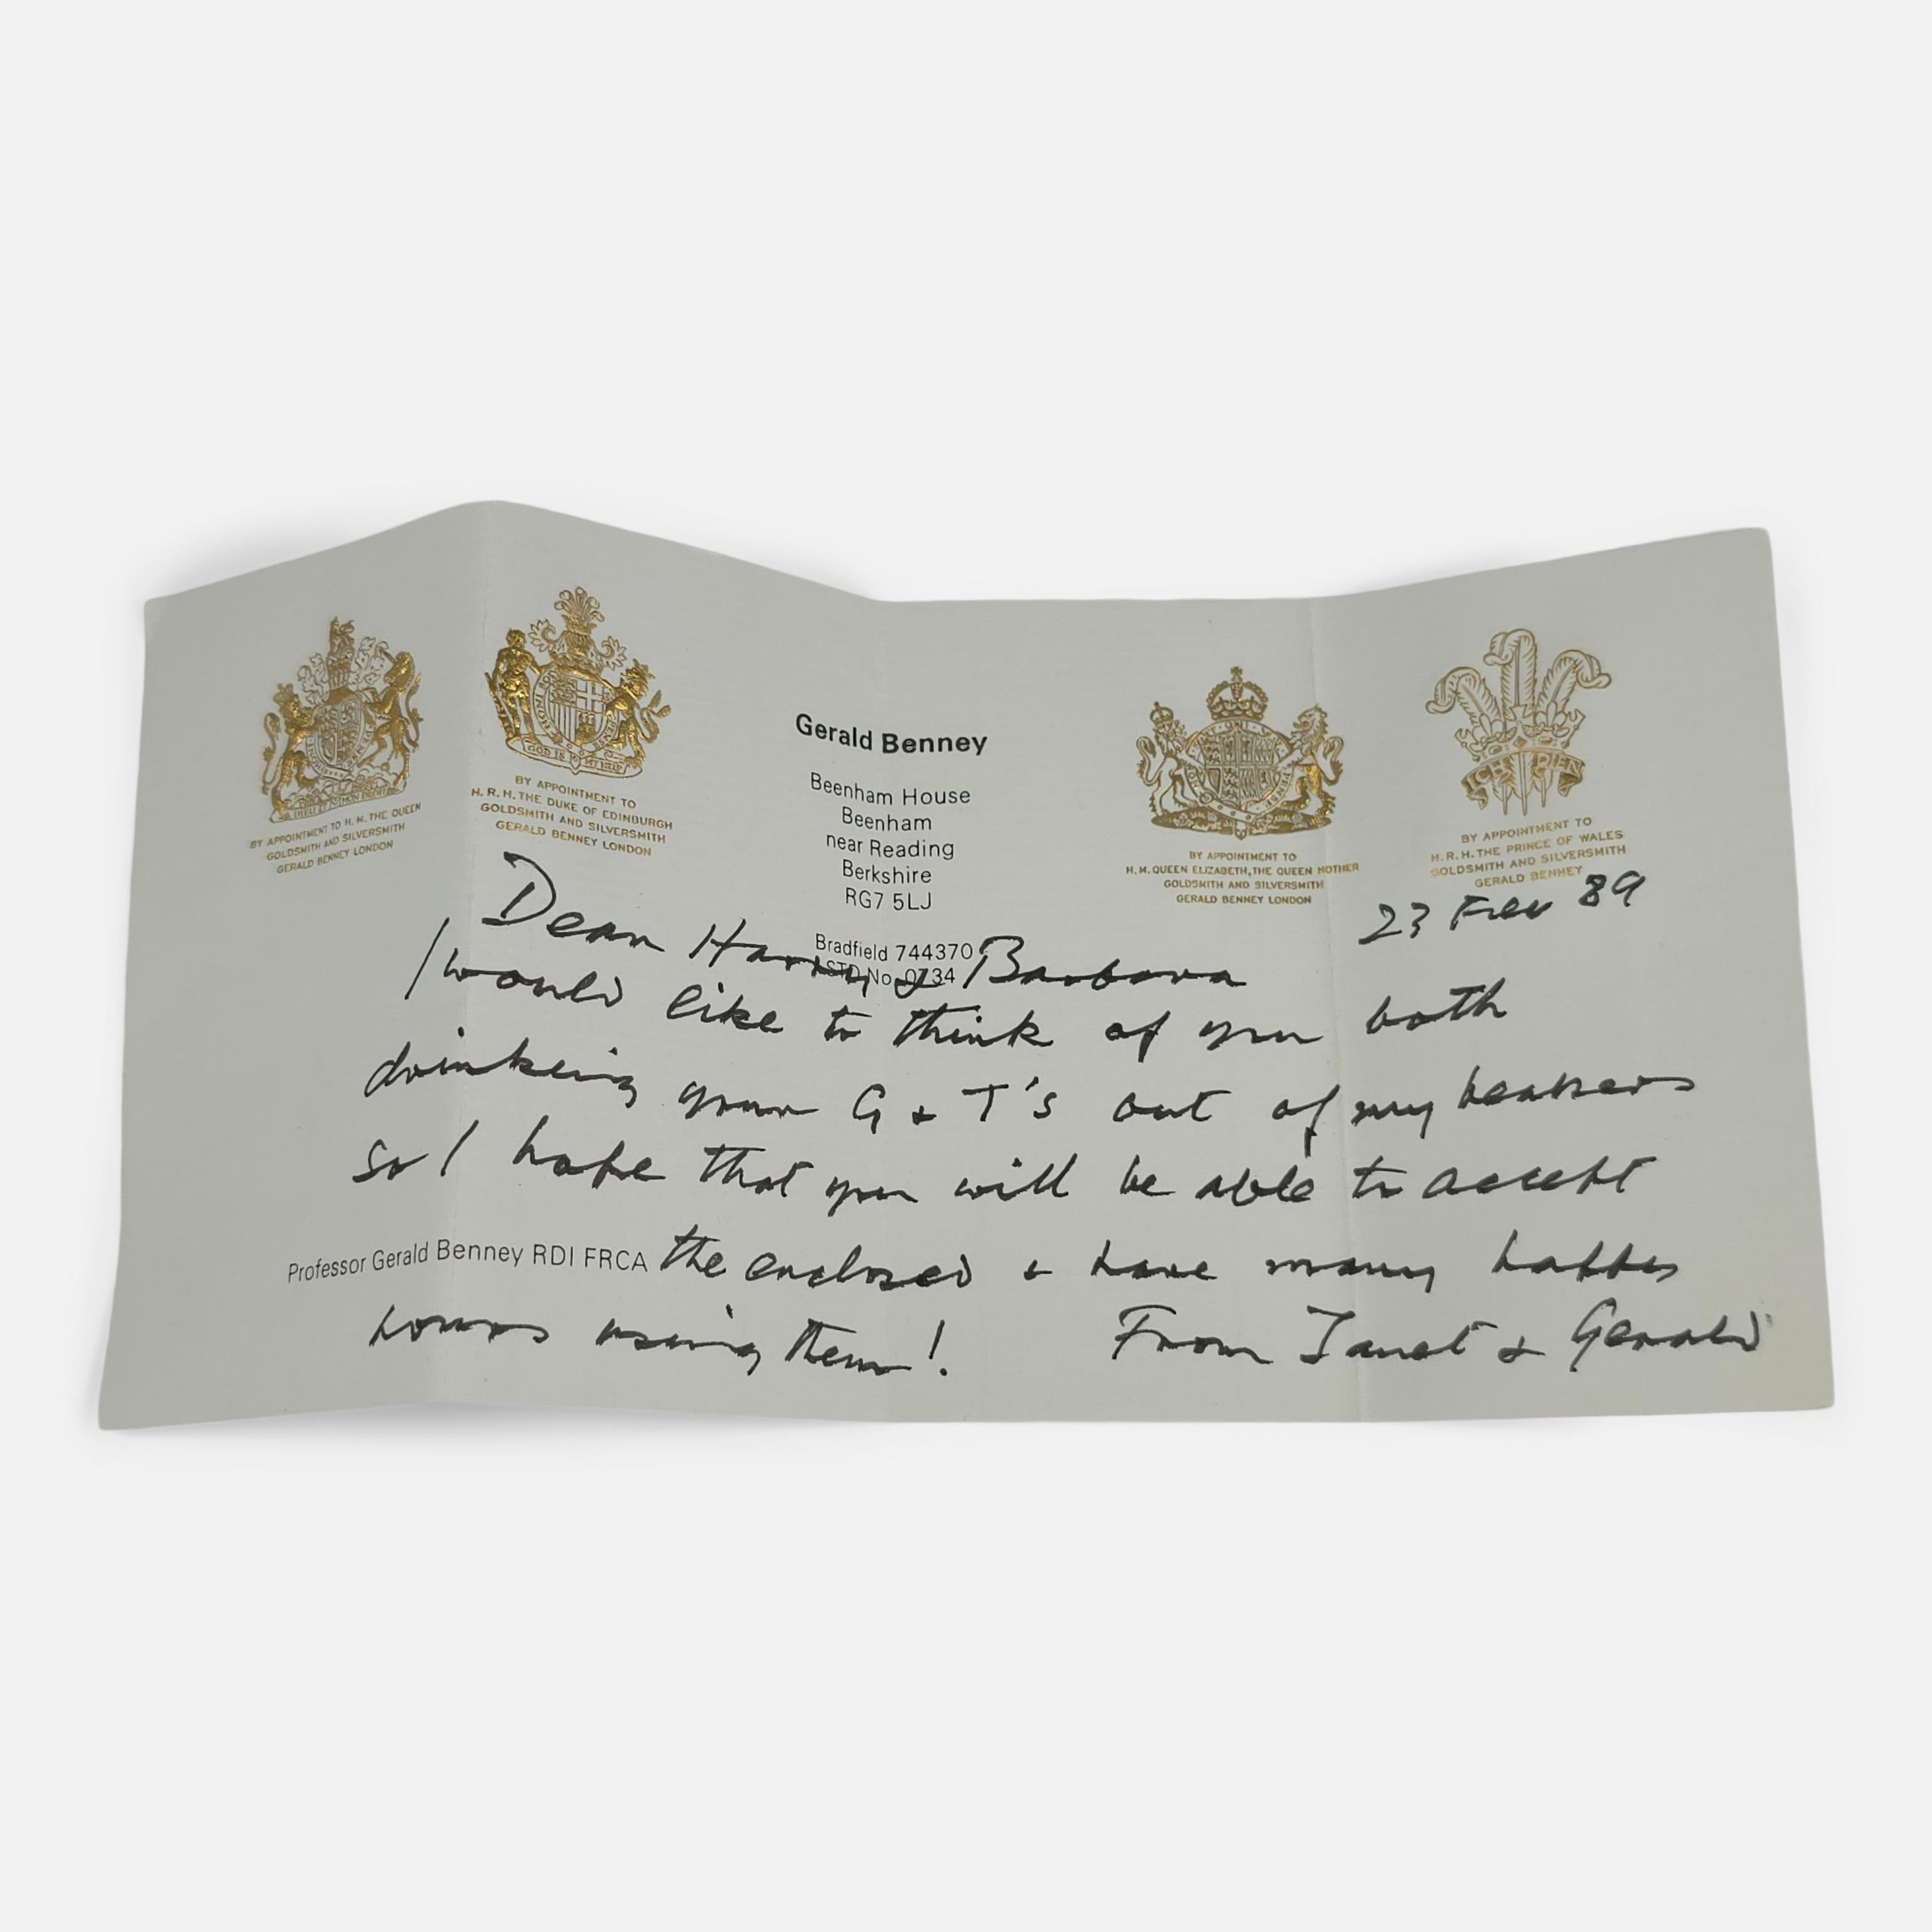 BY APPOINTMENT TO H. M. THE QUEEN
GOLDSMITH AND SILVERSMITH
GERALD BENNEY LONDON
GOD IS MY HELP
BY APPOINTMENT TO
H. R. H. THE DUKE OF EDINBURGH
GOLDSMITH AND SILVERSMITH
GERALD BENNEY LONDON
Gerald Benney
Beenham House
Beenham
near Reading
Berkshire
RG7 5LJ
Bradfield 744370
STD No. 0734
BY APPOINTMENT TO
H. M. QUEEN ELIZABETH, THE QUEEN MOTHER
GOLDSMITH AND SILVERSMITH
GERALD BENNEY LONDON
ICH DIEN
BY APPOINTMENT TO
H. R. H. THE PRINCE OF WALES
GOLDSMITH AND SILVERSMITH
GERALD BENNEY
23 Feb 89
Dear Harry & Barbara
I would like to think of you both
drinking your G & T's out of my beakers
so I hope that you will be able to accept
Professor Gerald Benney RDI FRCA
the enclosed & have many happy
hours using them! From Janet & Gerald